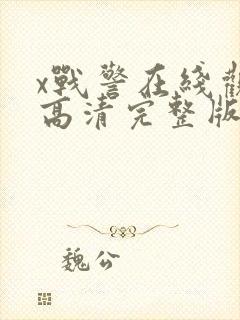 x戰警在綫觀
高清完整版
魏公